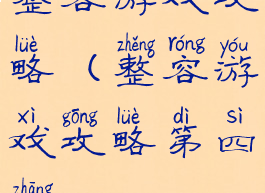 整容游戏攻
lüè zhěng róng yóu
略（整容游
xì gōng lüè dì sì
戏攻略第四
zhāng